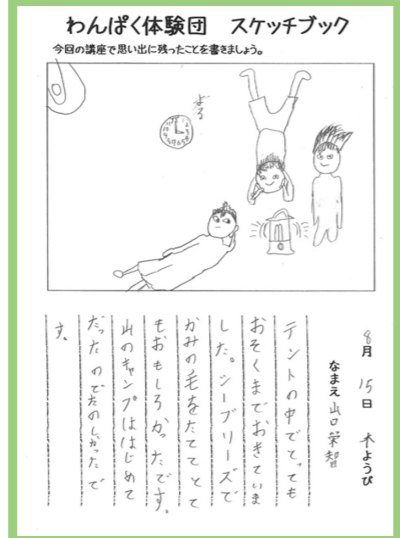 わんぱく体験団　スケッチブック
今回の講座で思い出に残ったことを書きましょう。
よる
8月 15日 木ようび
なまえ 山口 栄智
テントの中でとっても
おそくまでおきていま
した。シーブリーズで
かみの毛をたてて とて
もおもしろかったです。
山のキャンプははじめて
だったのでたのしかったで
す。